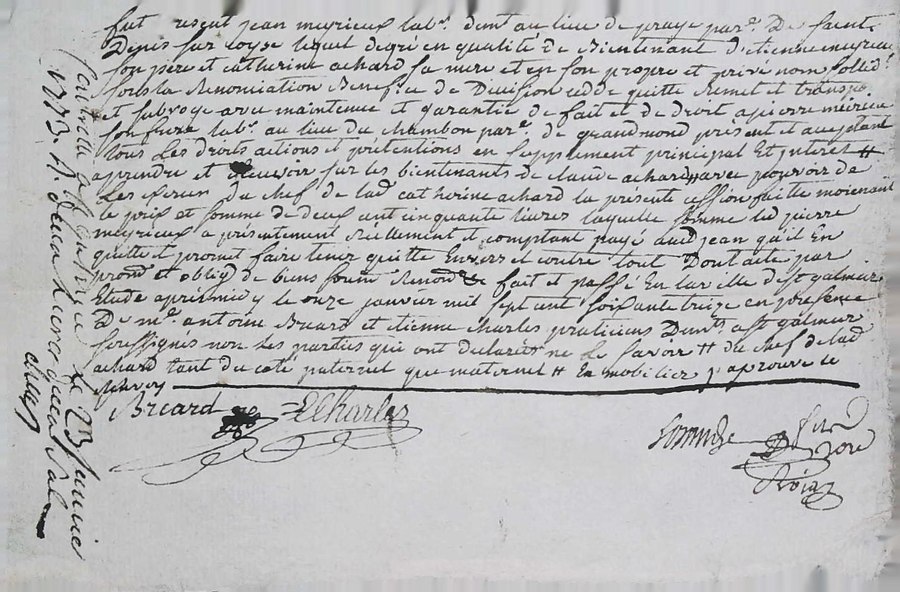 fut present jean meyrieux lab.r dem.t au lieu de praye par.e De saint
Denis sur Coyse lequel de gré en qualité de Bientenant d'étienne meyrieu
son père et catherine achard sa mere et en son propre et privé nom solid.t
sous la Renonciation Benefice de Division cedde quitte Remet et transpo
et subroge avec maintenue et garantie de fait et de droit a pierre meyrieu
son frere lab.r au lieu du chambon par.e de grandmond present et aceptant
tous Les droits actions et pretentions en supplement principal Et interet #
aprendre et Recevoir sur les bientenants de claude achard # avec pouvoir de
Les du chef de lad catherine achard la présente cession faitte moienant
le prix et somme de deux cent cinquante livres laquelle somme led pierre
meyrieux a présentement Réellement et comptant payé aud jean qu'il En
quitte et promet faire tenir quitte Envers et contre tout Dont acte par
prom et oblig de biens soum Renon & fait et passé En la ville de s.t galmier
Etude après midy le onze janvier mil sept cent soixante treize en presence
De m.e antoine Bréard et étienne charles praticiens Dem.ts a s.t galmier
soussignes non Les parties qui ont déclarés ne Le savoir # du chef de lad
achard tant du coté paternel que maternel # En mobilier j'aprouve le
Renvoy
Bréard Charles
Roiaz
le 23 janvier
1773